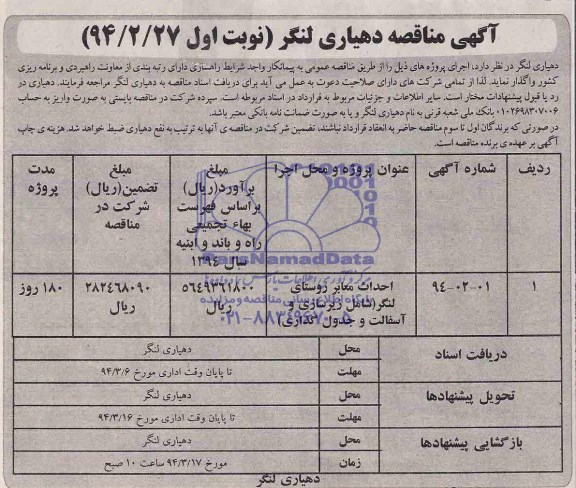 آگهی مناقصه دهیاری لنگر (نوبت اول ۹۴/۲/۲۷)
دهیاری لنگر در نظر دارد، اجرای پروژه های ذیل را از طریق مناقصه عمومی به پیمانکار واجد شرایط راهسازی دارای رتبه بندی از معاونت راهبردی و برنامه ریزی
کشور واگذار نماید. لذا از تمامی شرکت های دارای صلاحیت دعوت به عمل می آید برای دریافت اسناد مناقصه به دهیاری لنگر مراجعه فرمایند. دهیاری در
رد یا قبول پیشنهادات مختار است. سایر اطلاعات و جزئیات مربوط به قرارداد در اسناد مربوطه است. سپرده شرکت در مناقصه بایستی به صورت واریز به حساب
۰۱۰۲۶۹۸۳۰۷۰۰۶ بانک ملی شعبه قرنی به نام دهیاری لنگر و یا به صورت ضمانت نامه بانکی معتبر باشد.
در صورتی که برندگان اول تا سوم مناقصه حاضر به انعقاد قرارداد نباشند، تضمین شرکت در مناقصه ی آنها به ترتیب به نفع دهیاری ضبط خواهد شد. هزینه ی چاپ
آگهی بر عهده ی برنده مناقصه است.
ردیف شماره آگهی عنوان پروژه و محل اجرا مبلغ برآورد(ریال) براساس فهرست بهاء تجمیعی راه و باند و ابنیه سال ۱۳۹۴ مبلغ تضمین(ریال) شرکت در مناقصه مدت پروژه
۱ ۹۴-۰۲-۰۱ احداث معابر روستای لنگر(شامل زیرسازی و آسفالت و جدول گذاری) ۵۶۴۹۳۶۱۸۰۰ ریال ۲۸۲۴۶۸۰۹۰ ریال ۱۸۰ روز
دریافت اسناد محل دهیاری لنگر
مهلت تا پایان وقت اداری مورخ ۹۴/۳/۶
تحویل پیشنهادها محل دهیاری لنگر
مهلت تا پایان وقت اداری مورخ ۹۴/۳/۱۶
بازگشایی پیشنهادها محل دهیاری لنگر
زمان مورخ ۹۴/۳/۱۷ ساعت ۱۰ صبح
دهیاری لنگر
ParsNamadData
۰۲۱-۸۸۳۴۹۶۷۰-۵